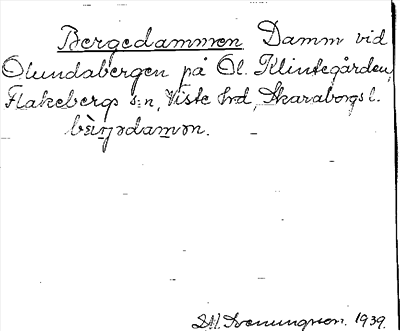 Bergedammen Damm vid
Olundabergen på Öl. Klintegården,
Flakebergs s:n, Viste hrd, Skaraborgs l.
1939.